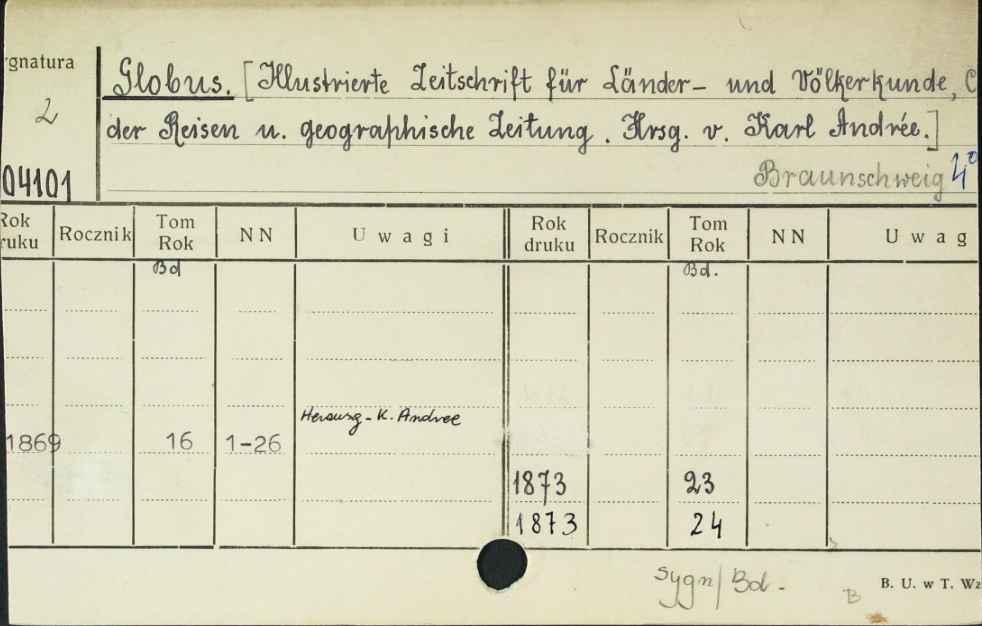 ygnatura
2
04101
Globus. [Illustrierte Zeitschrift für Länder- und Völkerkunde, C
der Reisen u. geographische Zeitung. Hrsg. v. Karl Andrée.]
Braunschweig 4°
Rok ruku Rocznik Tom Rok NN Uwagi Rok druku Rocznik Tom Rok NN Uwag
Bd Bd.
Herausg. K. Andree
1869 16 1-26
1873 23
1873 24
sygn/Bd.
B
B. U. w T. Wz